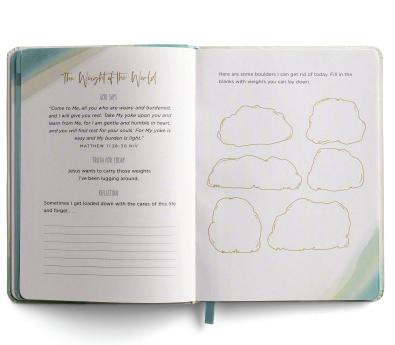 The Weight of the World
GOD SAYS
"Come to Me, all you who are weary and burdened,
and I will give you rest. Take My yoke upon you and
learn from Me, for I am gentle and humble in heart,
and you will find rest for your souls. For My yoke is
easy and My burden is light."
MATTHEW 11:28-30 NIV
TRUTH FOR TODAY
Jesus wants to carry those weights
I've been lugging around.
REFLECTION
Sometimes I get loaded down with the cares of this life
and forget . . .
Here are some boulders I can get rid of today. Fill in the
blanks with weights you can lay down.